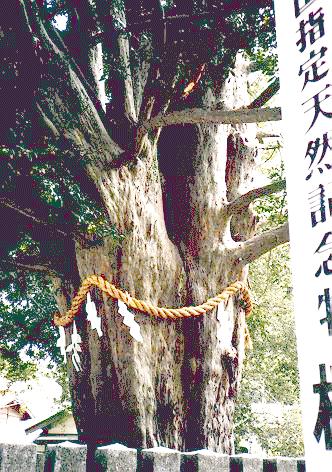 指定天然記念物